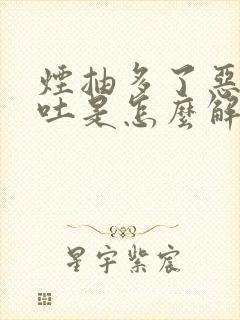 煙抽多了惡
吐是怎麼解
星宇紫宸